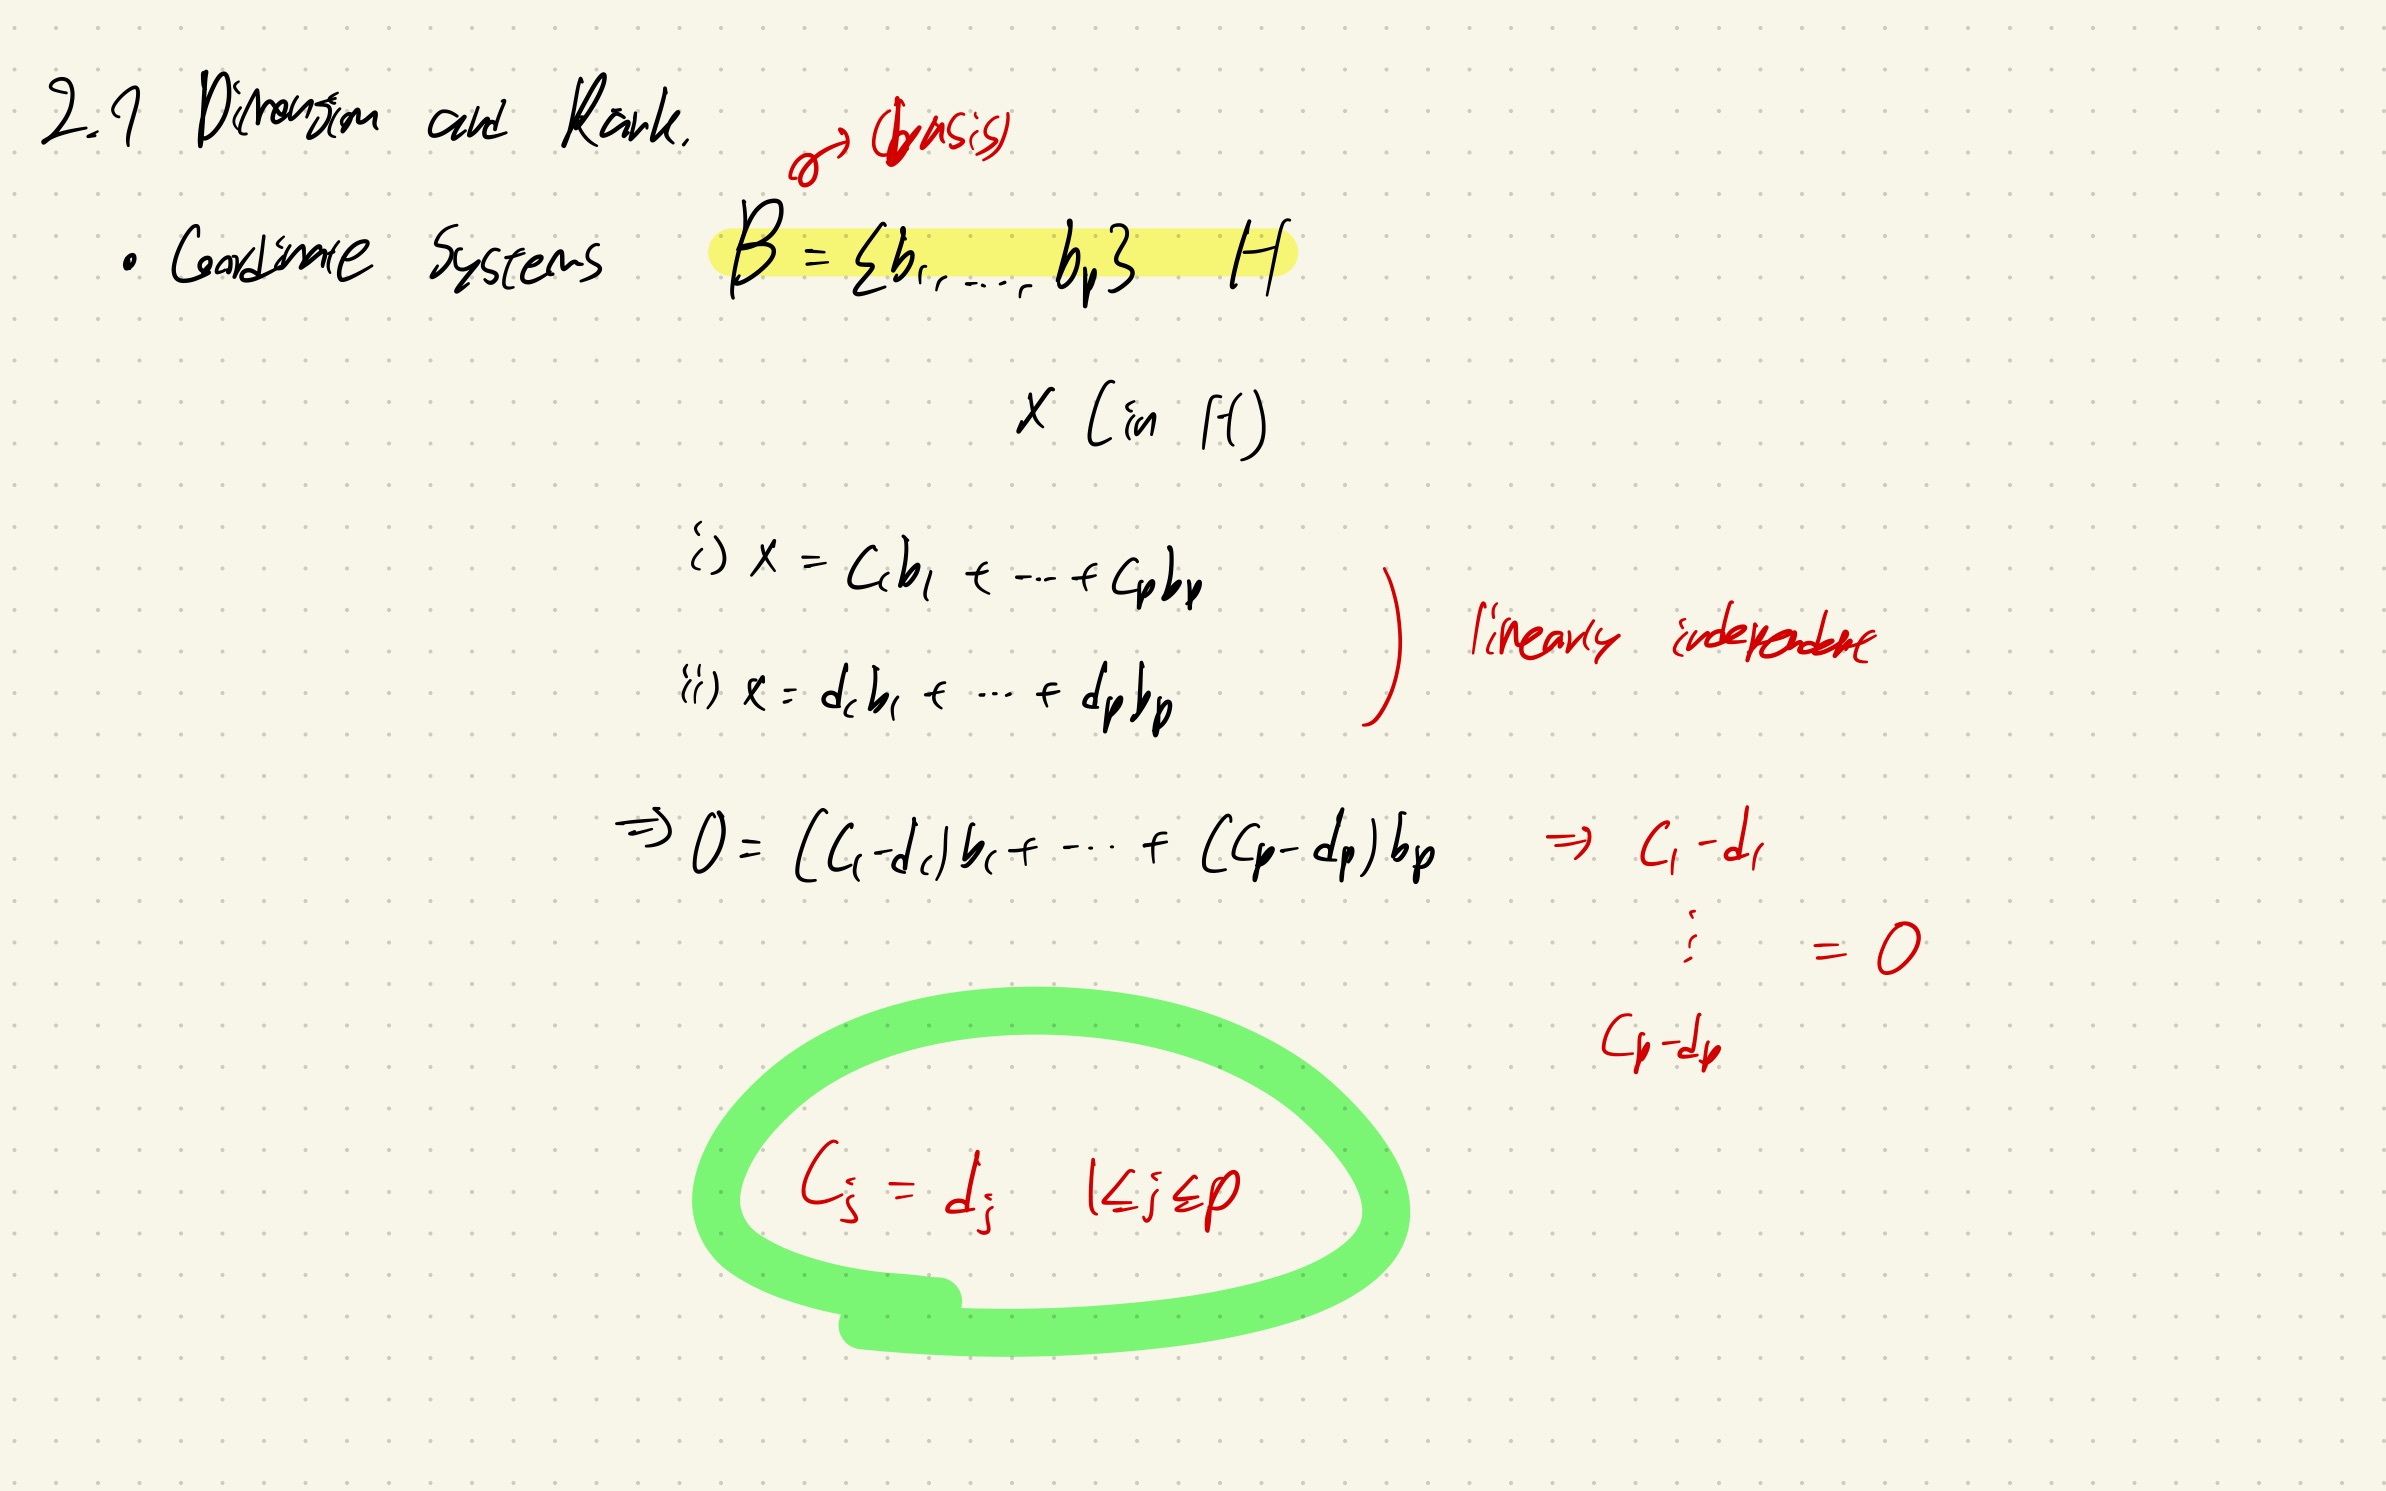 2.9 Dimension and Rank.
(basis)
• Coordinate Systems B = {b₁, ..., bp} H
X (in H)
i) x = c₁b₁ + ... + cpbp
linearly independent
ii) x = d₁b₁ + ... + dpbp
⇒ 0 = (c₁-d₁)b₁ + ... + (cp-dp)bp ⇒ c₁-d₁
⋮ = 0
cp-dp
cj = dj 1≤j≤p